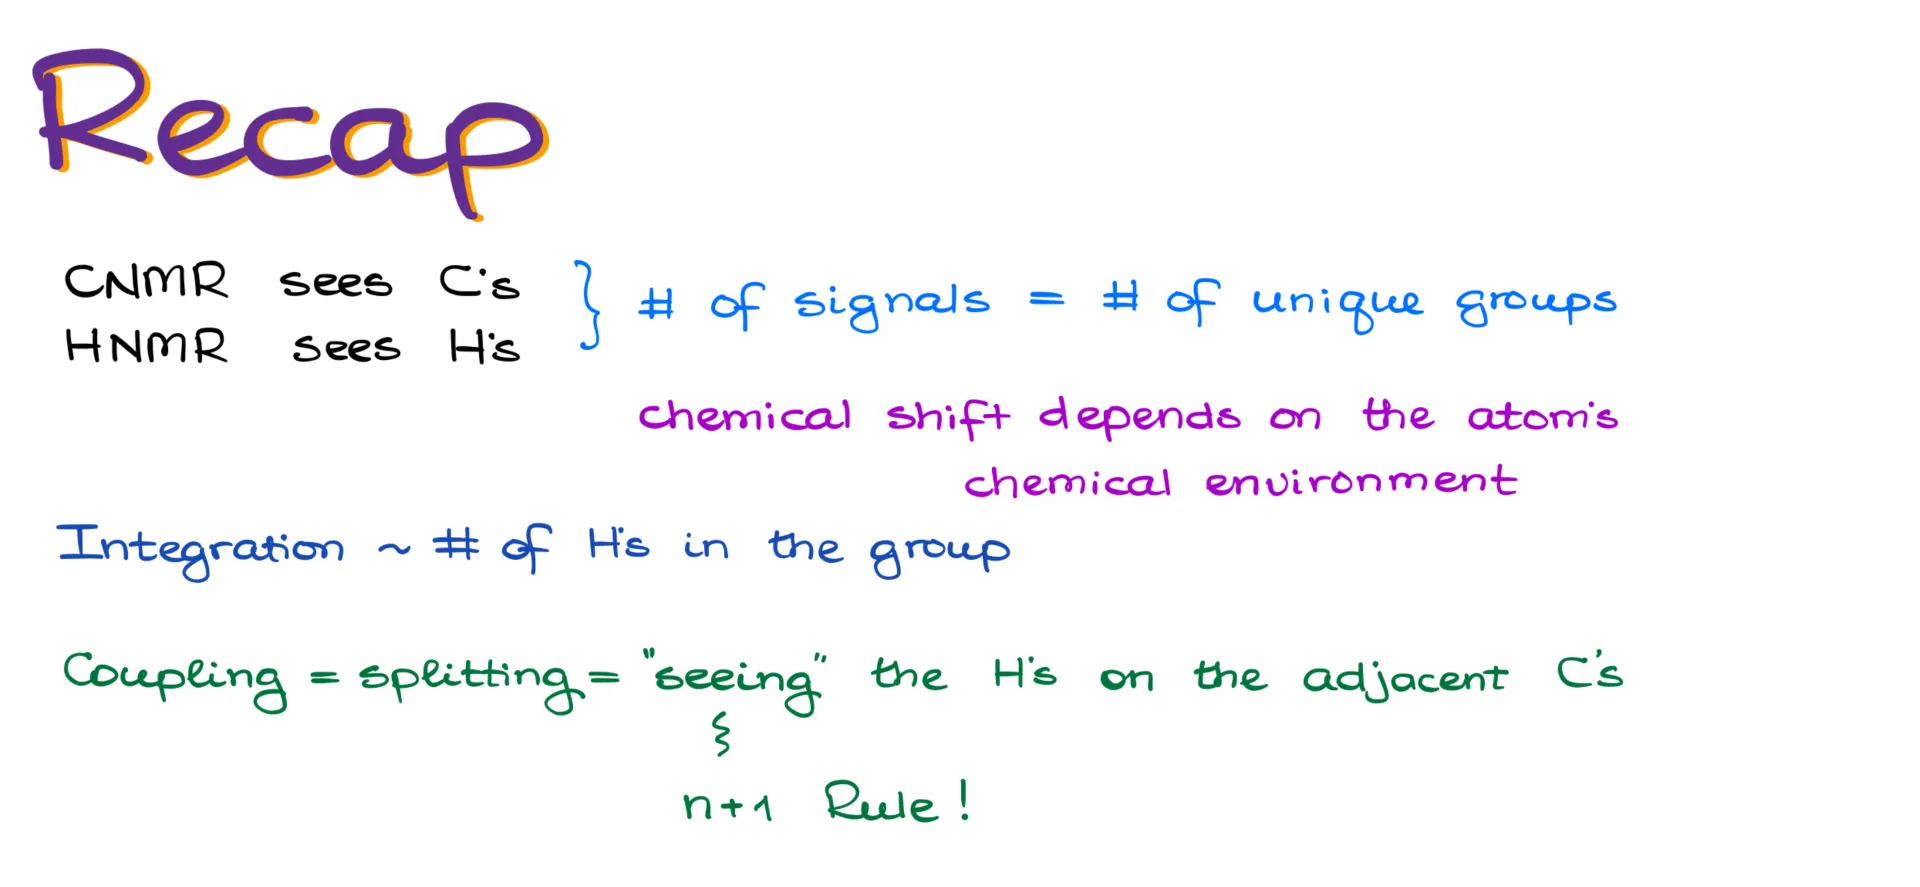 Recap
CNMR sees C's } # of signals = # of unique groups
HNMR sees H's
chemical shift depends on the atom's
chemical environment
Integration ~ # of H's in the group
Coupling = splitting = "seeing" the H's on the adjacent C's
n+1 Rule!